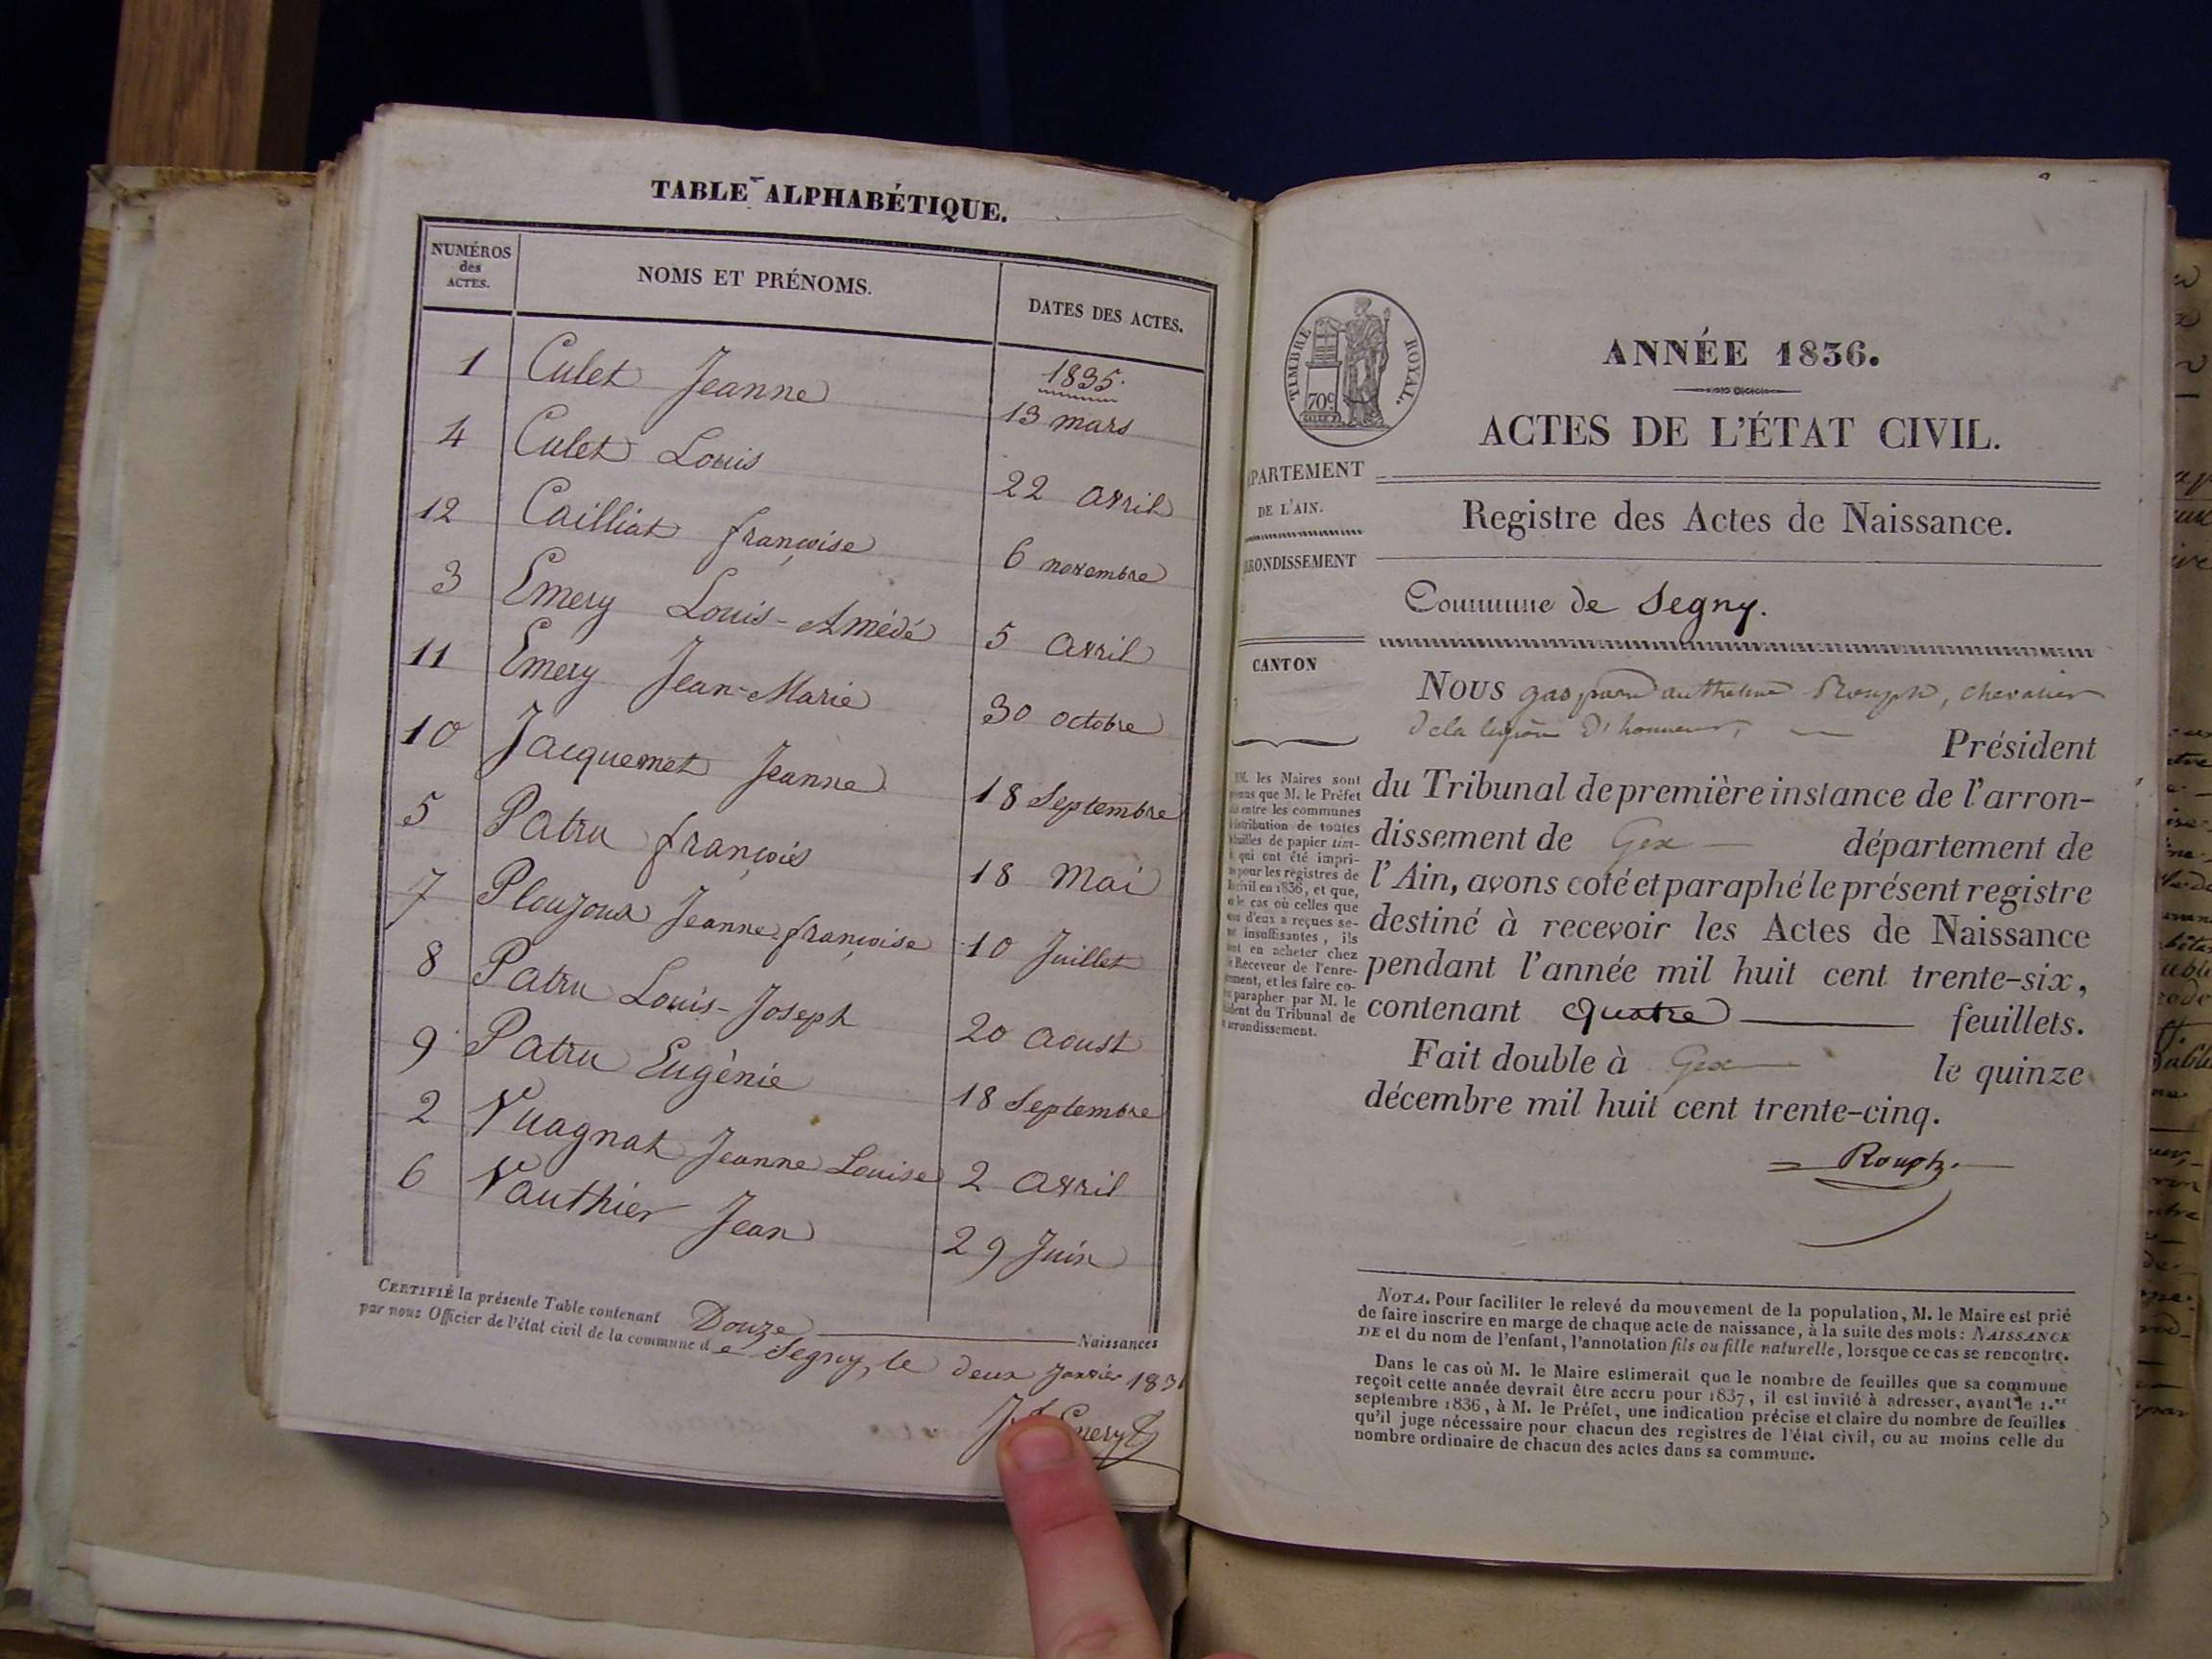 TABLE ALPHABÉTIQUE.
NUMÉROS des ACTES.
NOMS ET PRÉNOMS.
DATES DES ACTES.
1835.
1 Culet Jeanne 13 mars
4 Culet Louis 22 avril
12 Cailliat françoise 6 novembre
3 Emery Louis-Amédé 5 avril
11 Emery Jean-Marie 30 octobre
10 Jacquemet Jeanne 18 Septembre
5 Patru françois 18 Mai
7 Ploujoux Jeanne françoise 10 Juillet
8 Patru Louis-Joseph 20 aoust
9 Patru Eugènie 18 Septembre
2 Vuagnat Jeanne Louise 2 avril
6 Vauthier Jean 29 Juin
CERTIFIÉ la présente Table contenant Douze Naissances
par nous Officier de l'état civil de la commune de Segny, le deux Janvier 183
Emery
TIMBRE ROYAL.
70c
ANNÉE 1836.
ACTES DE L'ÉTAT CIVIL.
PARTEMENT
DE L'AIN.
RONDISSEMENT
CANTON
Registre des Actes de Naissance.
Commune de Segny.
NOUS gaspard anthelme Rouph, chevalier
de la legion d'honneur, Président
du Tribunal de première instance de l'arron-
dissement de Gex département de
l'Ain, avons coté et paraphé le présent registre
destiné à recevoir les Actes de Naissance
pendant l'année mil huit cent trente-six,
contenant quatre feuillets.
Fait double à Gex le quinze
décembre mil huit cent trente-cinq.
Rouph.
les Maires sont
que M. le Préfet
entre les communes
distribution de toutes
feuilles de papier tim-
qui ont été impri-
pour les registres de
civil en 1836, et que,
le cas où celles que
d'eux a reçues se-
insuffisantes, ils
en acheter chez
le Receveur de l'enre-
ment, et les faire co-
parapher par M. le
dent du Tribunal de
arrondissement.
NOTA. Pour faciliter le relevé du mouvement de la population, M. le Maire est prié
de faire inscrire en marge de chaque acte de naissance, à la suite des mots: NAISSANCE
DE et du nom de l'enfant, l'annotation fils ou fille naturelle, lorsque ce cas se rencontre.
Dans le cas où M. le Maire estimerait que le nombre de feuilles que sa commune
reçoit cette année devrait être accru pour 1837, il est invité à adresser, avant le 1.er
septembre 1836, à M. le Préfet, une indication précise et claire du nombre de feuilles
qu'il juge nécessaire pour chacun des registres de l'état civil, ou au moins celle du
nombre ordinaire de chacun des actes dans sa commune.